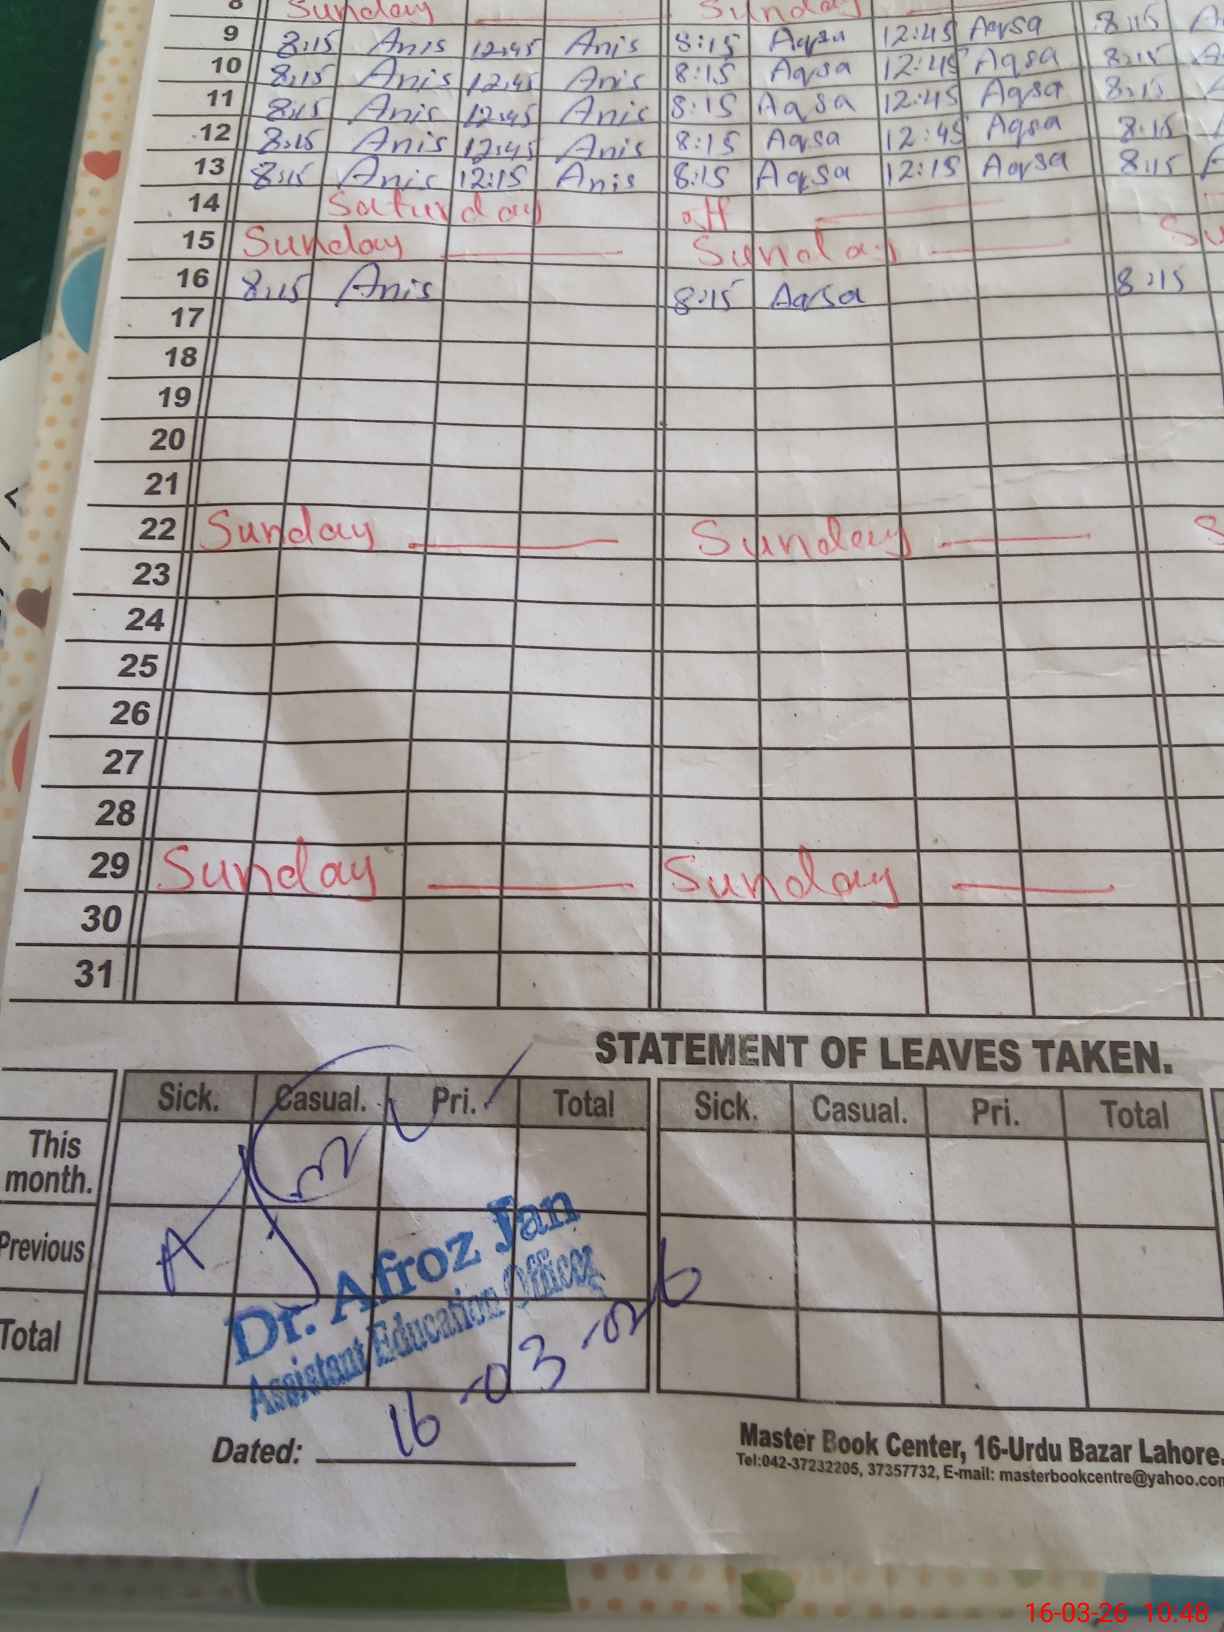 8 Sunday Sunday
9 8:15 Anis 12:45 Anis 8:15 Aqsa 12:45 Aqsa 8:15
10 8:15 Anis 12:45 Anis 8:15 Aqsa 12:45 Aqsa 8:15
11 8:15 Anis 12:45 Anis 8:15 Aqsa 12:45 Aqsa 8:15
12 8:15 Anis 12:45 Anis 8:15 Aqsa 12:45 Aqsa 8:15
13 8:15 Anis 12:15 Anis 8:15 Aqsa 12:15 Aqsa 8:15
14 Saturday off
15 Sunday Sunday Su
16 8:15 Anis 8:15 Aqsa 8:15
17
18
19
20
21
22 Sunday Sunday S
23
24
25
26
27
28
29 Sunday Sunday
30
31
STATEMENT OF LEAVES TAKEN.
Sick. Casual. Pri. Total Sick. Casual. Pri. Total
This month.
Previous
Total
Dr. Afroz Jan
Assistant Education Officer
Dated: 16-03-026
Master Book Center, 16-Urdu Bazar Lahore.
Tel:042-37232205, 37357732, E-mail: masterbookcentre@yahoo.com
16-03-26 10:48